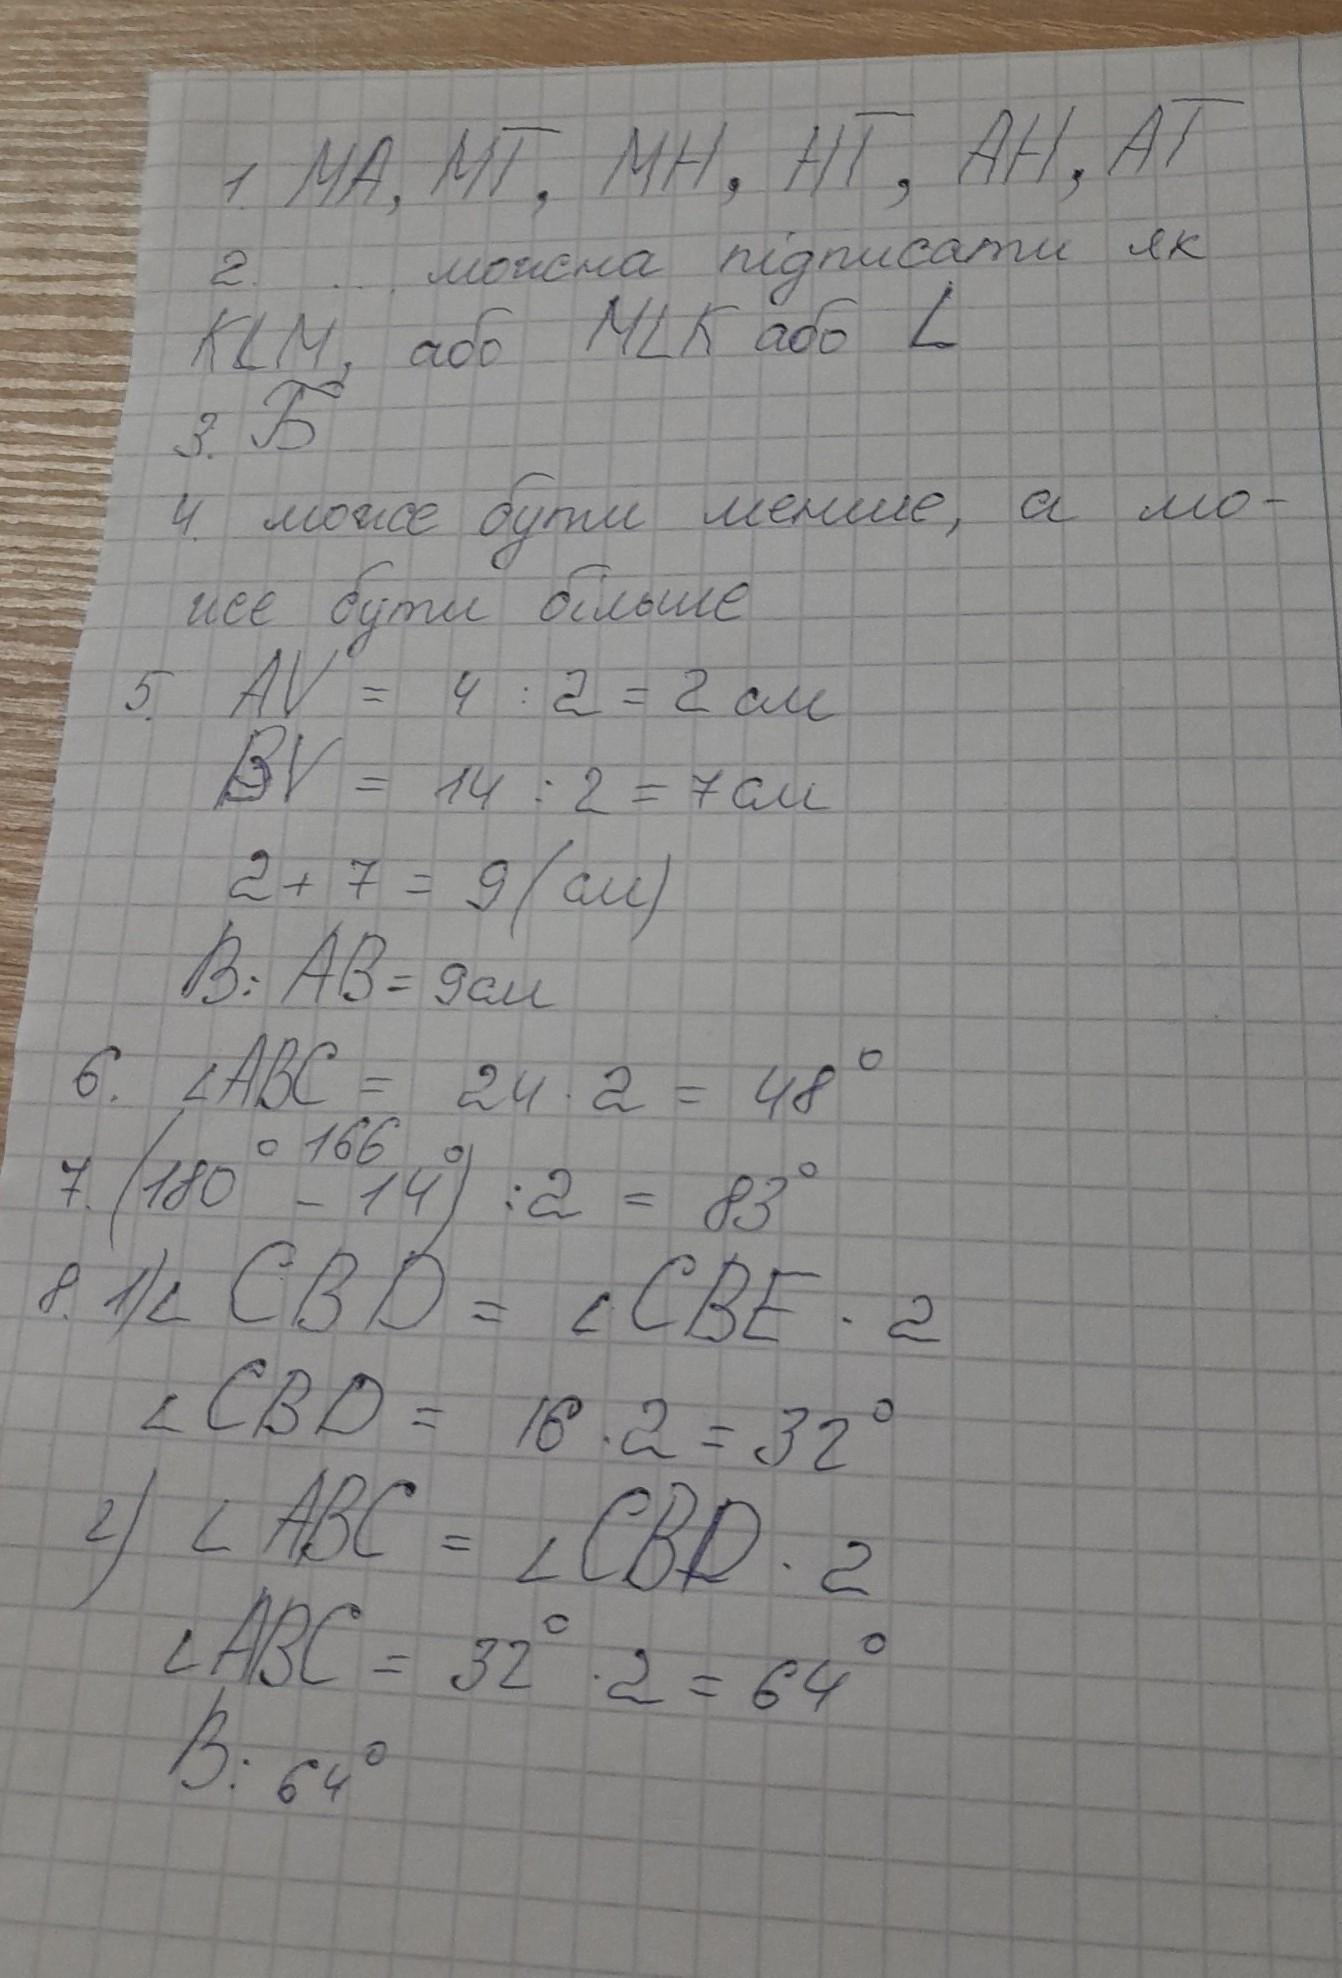 1. МА, МТ, МН, НТ, АН, АТ
2. ... можна підписати як
KLM, або MLK або L
3. Б
4. може бути менше, а мо-
же бути більше
5. AV = 4 : 2 = 2 см
BV = 14 : 2 = 7 см
2 + 7 = 9 (см)
В: AB = 9 см
6. ∠ABC = 24 · 2 = 48°
166
7. (180° - 14°) : 2 = 83°
8. 1) ∠CBD = ∠CBE · 2
∠CBD = 16 · 2 = 32°
2) ∠ABC = ∠CBD · 2
∠ABC = 32° · 2 = 64°
В: 64°